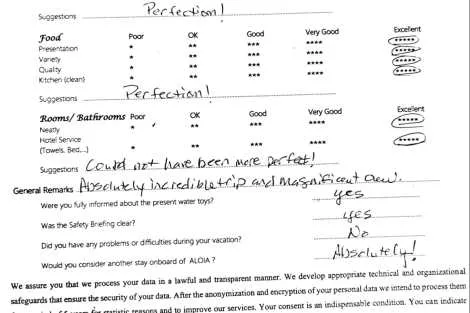 Suggestions Perfection!
Food Poor OK Good Very Good Excellent
Presentation * ** *** **** *****
Variety * ** *** **** *****
Quality * ** *** **** *****
Kitchen (clean) * ** *** **** *****
Suggestions Perfection!
Rooms/ Bathrooms Poor OK Good Very Good Excellent
Neatly * ** *** **** *****
Hotel Service
(Towels, Bed,...) * ** *** **** *****
Suggestions Could not have been more perfect!
General Remarks Absolutely incredible trip and magnificent crew.
Were you fully informed about the present water toys? yes
Was the Safety Briefing clear? yes
Did you have any problems or difficulties during your vacation? No
Would you consider another stay onboard of ALOIA ? Absolutely!
We assure you that we process your data in a lawful and transparent manner. We develop appropriate technical and organizational
safeguards that ensure the security of your data. After the anonymization and encryption of your personal data we intend to process them
for statistic reasons and to improve our services. Your consent is an indispensable condition. You can indicate